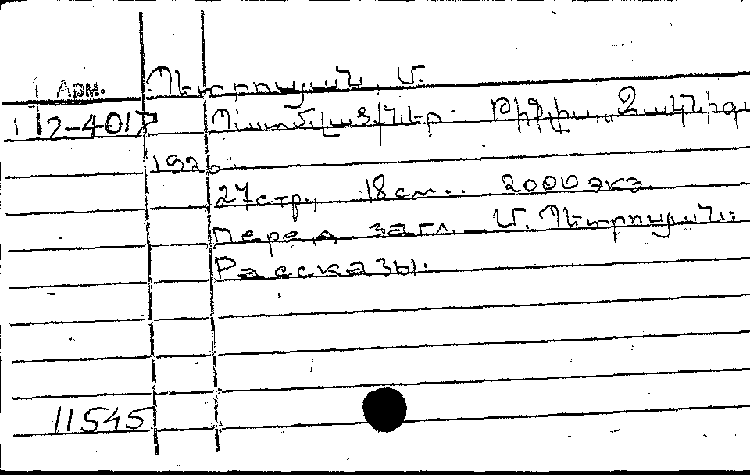 Арм. Պետրոսյան, Մ.
12-4017 Պատմվածքներ. Թիֆլիս, Զակնիգա
1926
27стр., 18см. 2000экз.
Перед загл. Մ. Պետրոսյան.
Рассказы.
11545